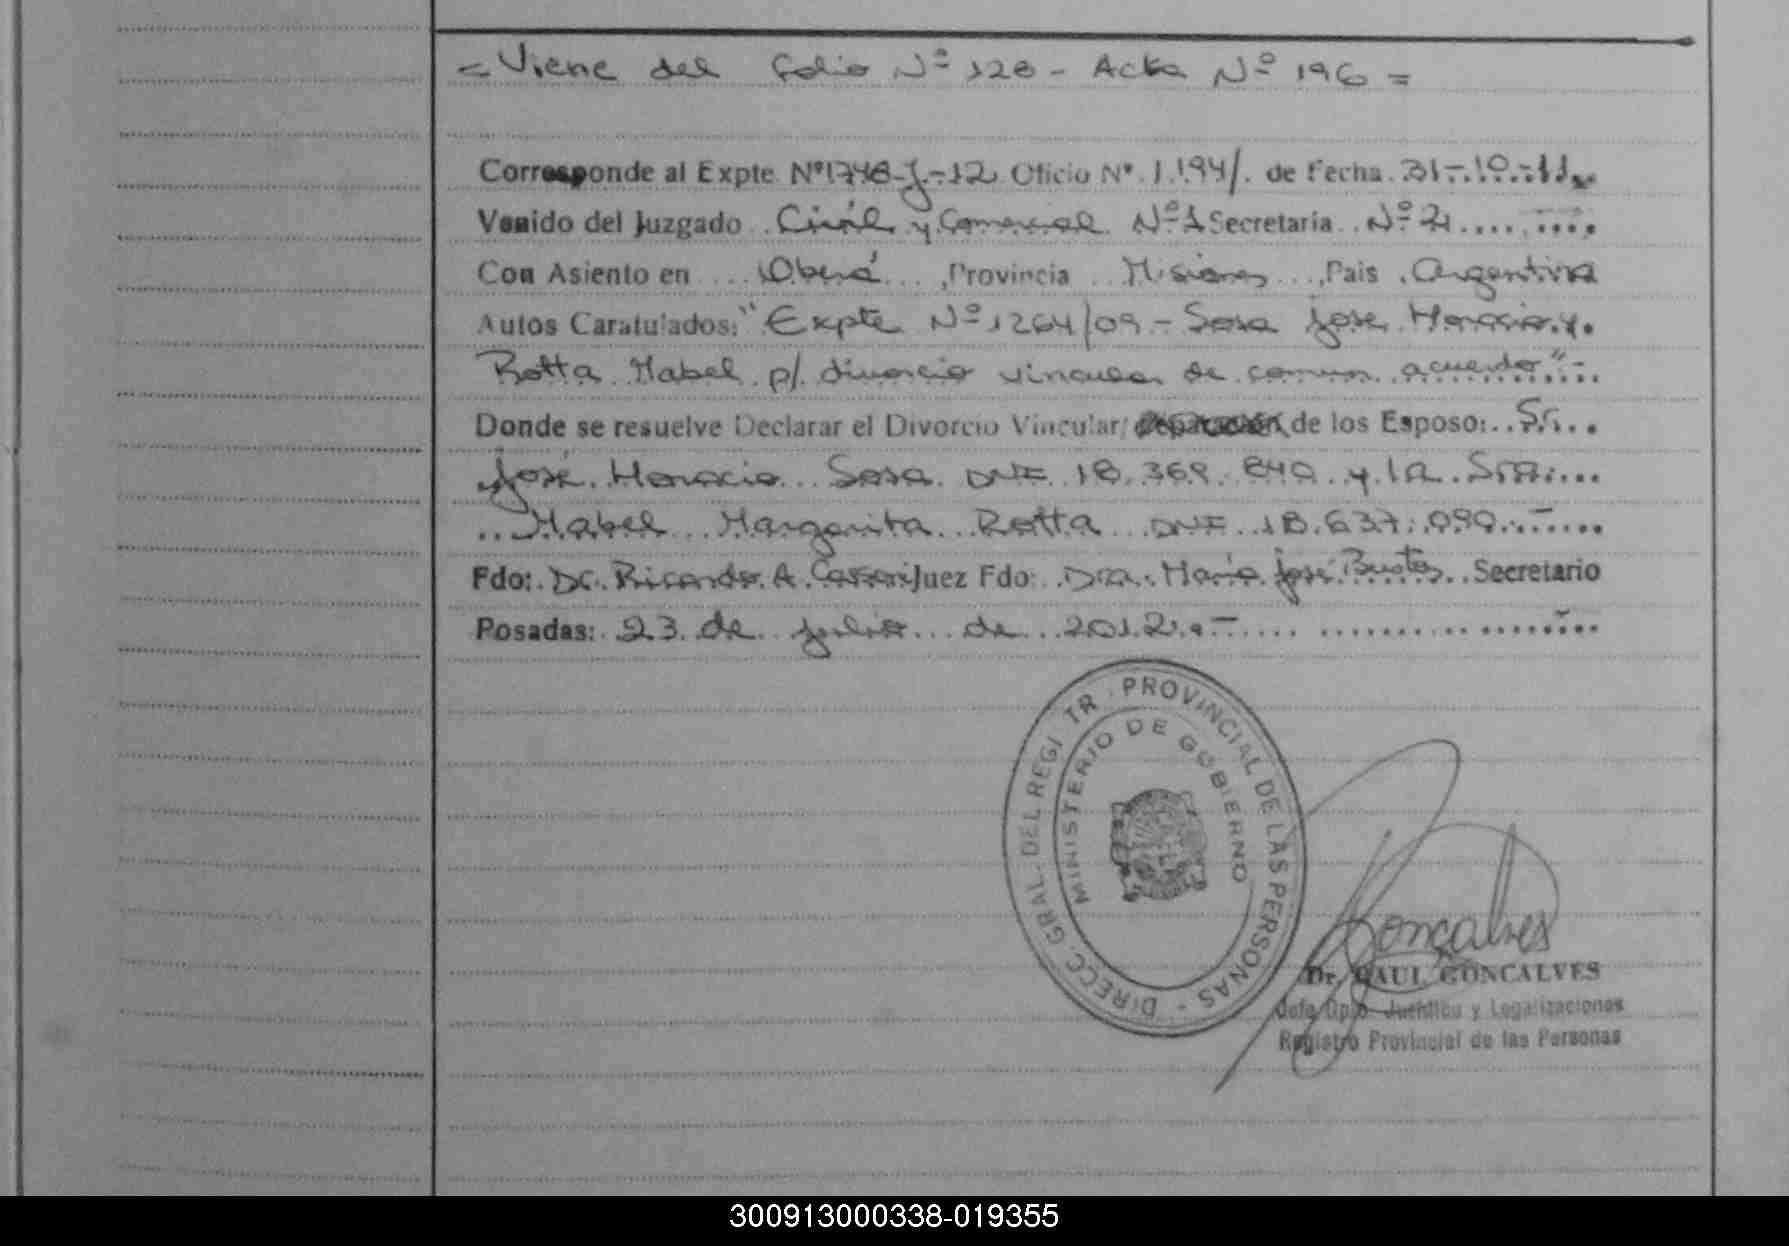 = Viene del folio Nº 128 - Acta Nº 196 =
Corresponde al Expte Nº1748-J-12 Oficio Nº 1.194/. de Fecha 31-10-11.
Venido del Juzgado Civil y Comercial Nº 1 Secretaria Nº 2
Con Asiento en Oberá, Provincia Misiones, Pais Argentina
Autos Caratulados: "Expte Nº 1264/09 - Sosa Jose Horacio y
Rotta Mabel p/ divorcio vincular de comun acuerdo"-
Donde se resuelve Declarar el Divorcio Vincular/ de los Esposo: Sr.
José Horacio Sosa DNI 18.369.840 y la Sra.
Mabel Margarita Rotta DNI 18.637.090.-
Fdo: Dr. Ricardo A. Juez Fdo: Dra. María José Bustos Secretario
Posadas: 23 de julio de 2012.-
DIRECC. GRAL. DEL REGI TR. PROVINCIAL DE LAS PERSONAS -
MINISTERIO DE GOBIERNO
Goncalves
Dr. RAUL GONCALVES
Jefe Dpto. Juridico y Legalizaciones
Registro Provincial de las Personas
300913000338-019355